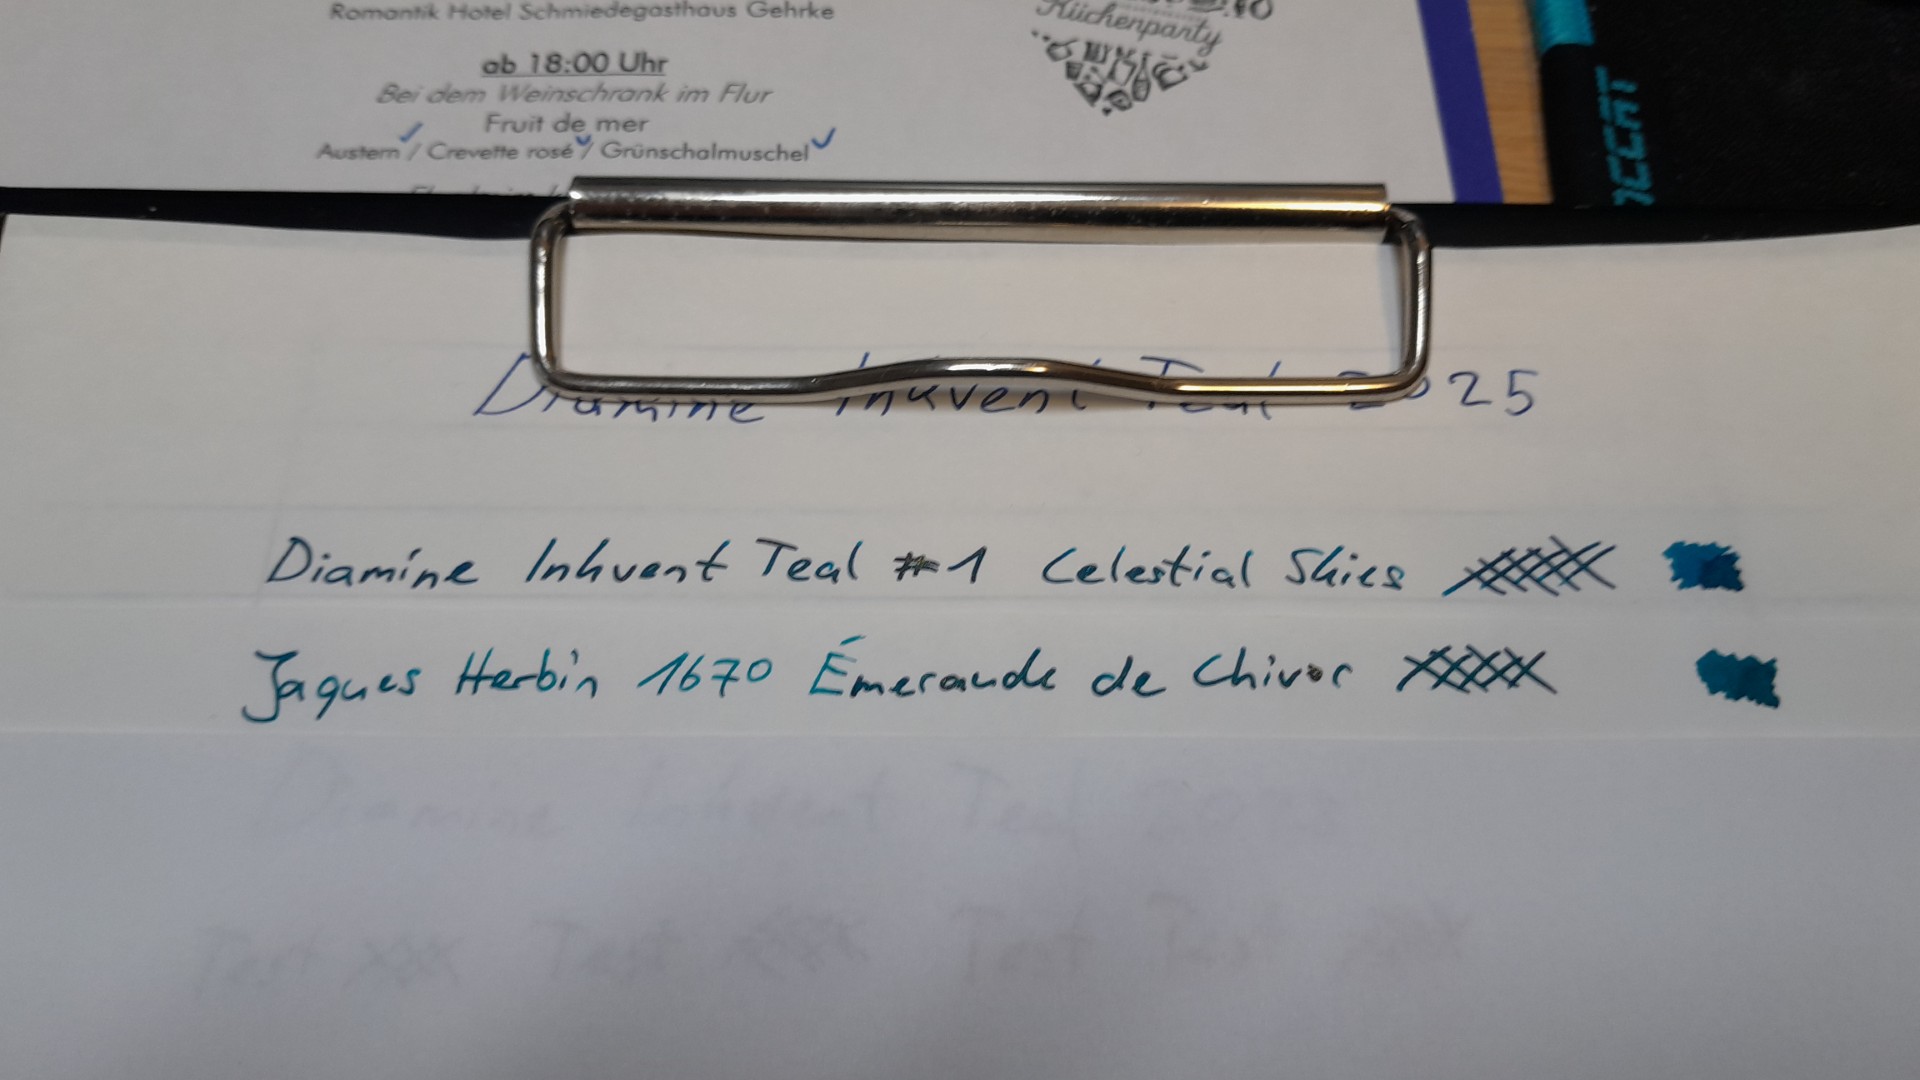 Romantik Hotel Schmiedegasthaus Gehrke
Küchenparty
ab 18:00 Uhr
Bei dem Weinschrank im Flur
Fruit de mer
Austern / Crevette rosé / Grünschalmuschel
Diamine Inkvent Teal 2025
Diamine Inkvent Teal #1 Celestial Skies
Jaques Herbin 1670 Émeraude de Chivor
Diamine Inkvent Teal
Test xxx Test Test Test